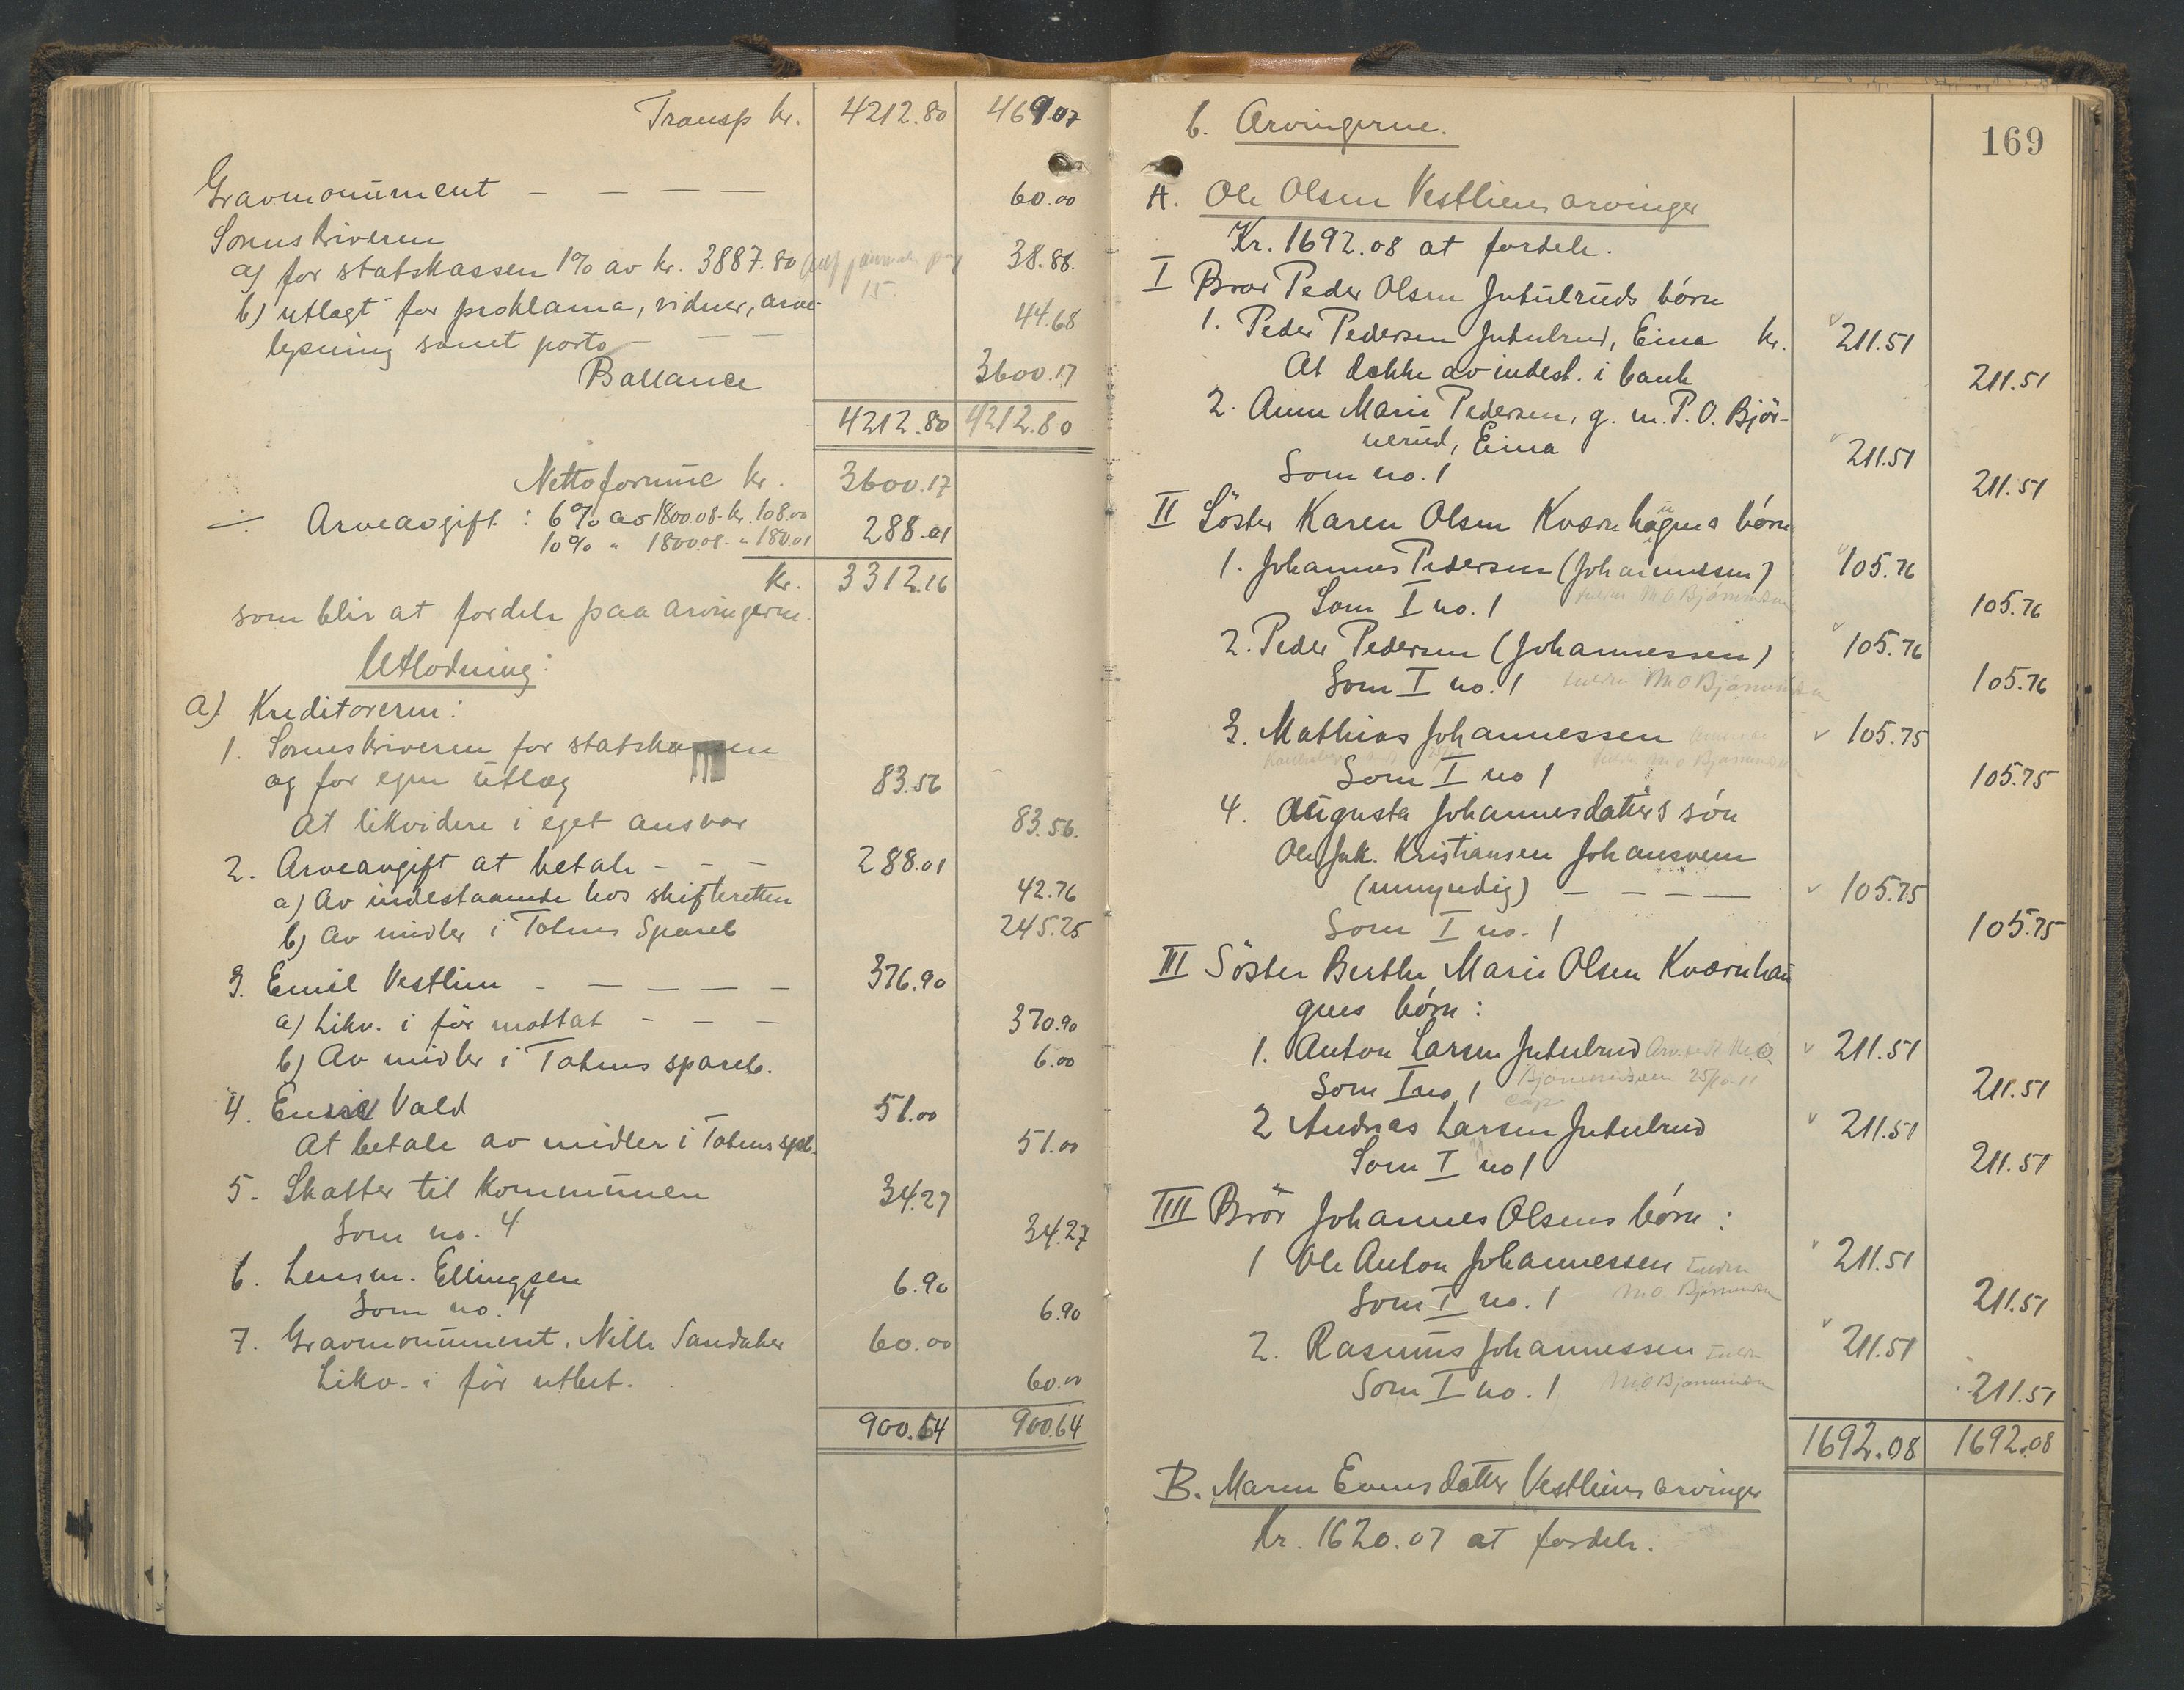 Transp kr. 4212.80 469.07
Gravmonument — — — — 60.00
Sorenskriveren
a) for statskassen 1% av kr. 3887.80 38.88.
15
b) utlagt for proklama, vidner, arve-
lysning samt porto — — 44.68
Ballance 3600.17
4212.80 4212.80
Nettoformue kr. 3600.17
÷ Arveavgift: 6% av 1800.08 - kr. 108.00
10% " 1800.08 - " 180.01 288.01
kr. 3312.16
som blir at fordele paa arvingerne.
Utlodning:
a) Kreditorerne:
1. Sorenskriveren for statskassen
og for egne utlæg 83.56
At likvidere i eget ansvar 83.56.
2. Arveavgift at betale - - - 288.01
a) Av indestaaende hos skifteretten 42.76
b) Av midler i Totens Spareb 245.25
3. Emil Vestlien - — — — — 376.90
a) Likv. i før mottat - — — 370.90
b) Av midler i Totens spareb. 6.00
4. Emil Vald 51.00
At betale av midler i Totens spb. 51.00
5. Skatter til kommunen 34.27
Som no. 4 34.27
6. Lensm. Ellingsen 6.90
Som no. 4 6.90
7. Gravmonument, Nils Sandaker 60.00
Likv. i før utbet. 60.00
900.64 900.64
169
b. Arvingerne.
A. Ole Olsen Vestliens arvinger
Kr. 1692.08 at fordele.
I Bror Peder Olsen Jutulruds børn
1. Peder Pedersen Jutulrud, Eina kr. 211.51
At dække av indest. i bank 211.51
2. Anne Marie Pedersen, g. m. P. O. Bjør-
nerud, Eina 211.51
Som no. 1 211.51
II Søster Karen Olsen Kværnhaugens børn
1. Johannes Pedersen (Johannessen) 105.76
Som I no. 1 105.76
2. Peder Pedersen (Johannessen) 105.76
Som I no. 1 105.76
3. Mathias Johannessen 105.75
Som I no 1 105.75
4. Augusta Johannesdatters søn
Ole Jak. Kristiansen Johansveen
(umyndig) — — — — 105.75
Som I no. 1 105.75
III Søster Berthe Marie Olsen Kværnhau
gens børn:
1. Anton Larsen Jutulrud 211.51
Som I no 1 211.51
2 Andreas Larsen Jutulrud 211.51
Som I no 1 211.51
IIII Bror Johannes Olsens børn:
1 Ole Anton Johannessen 211.51
Som I no. 1 211.51
2. Rasmus Johannessen 211.51
Som I no. 1 211.51
1692.08 1692.08
B. Maren Evensdatter Vestliens arvinger
Kr. 1620.07 at fordele.